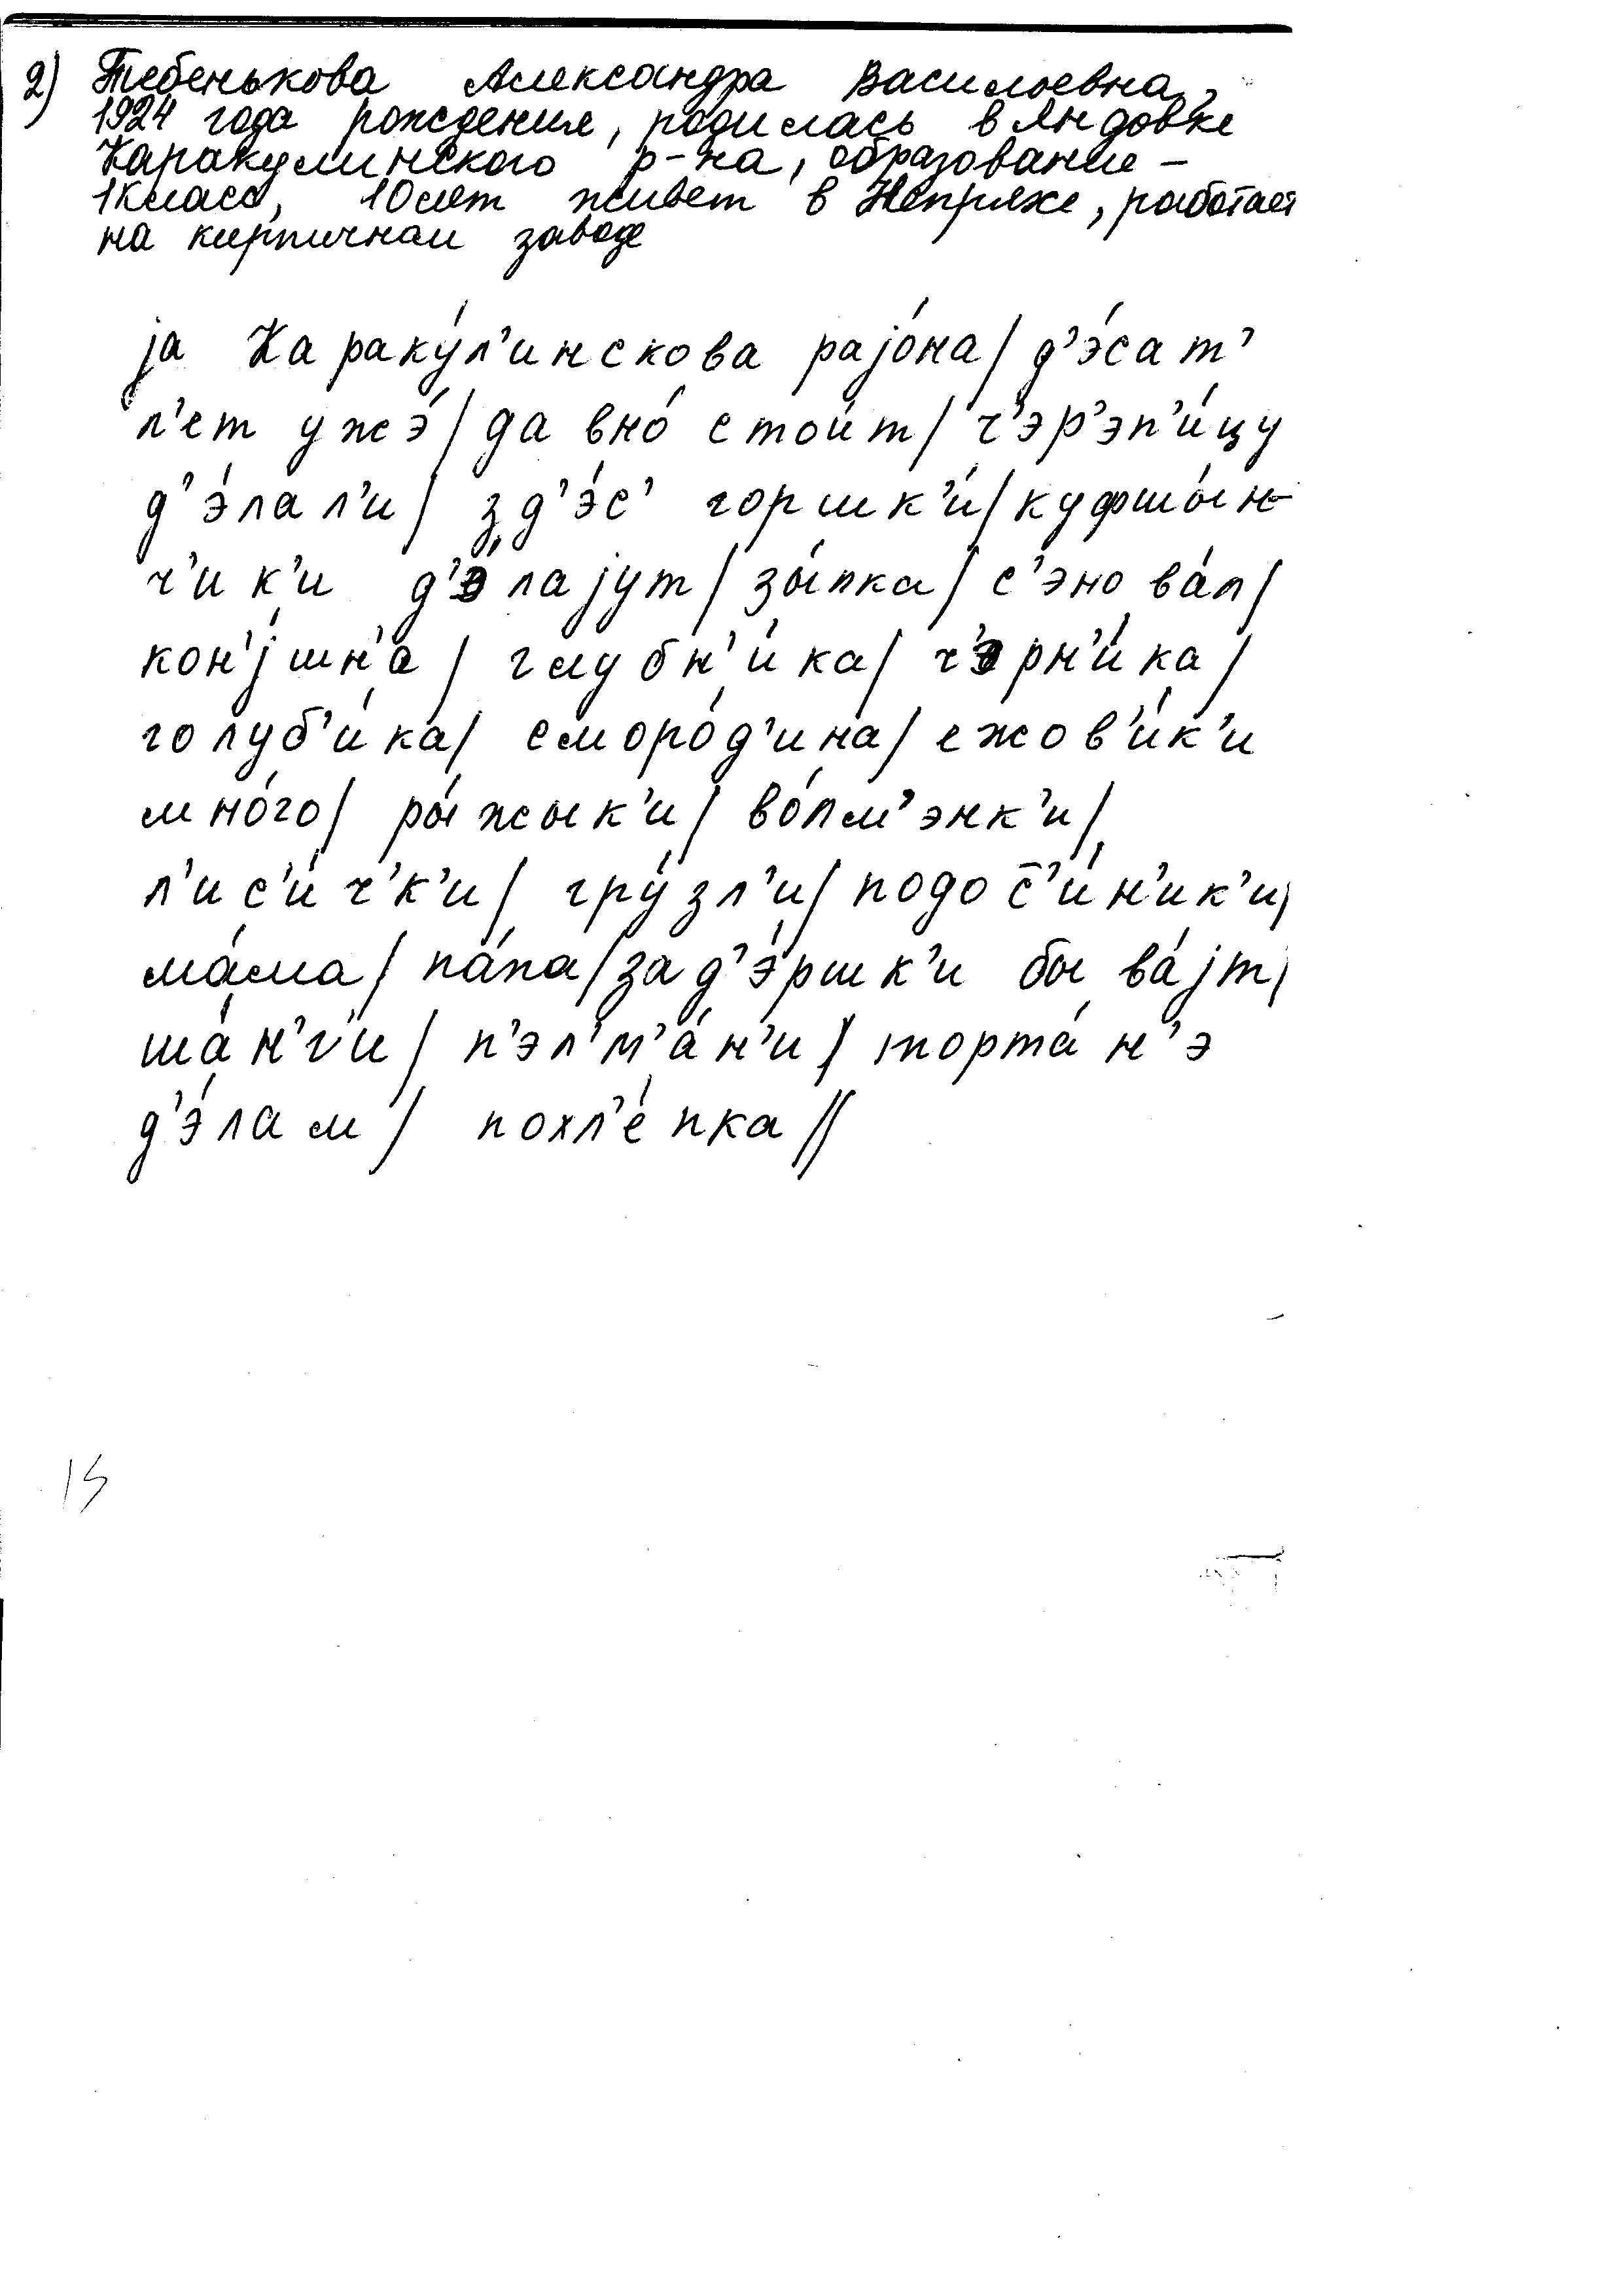 2) Тебенькова Александра Васильевна,
1924 года рождения, родилась в Яндовке
Каракулинского р-на, образование –
1 класс, 10 лет живет в Непряхе, работает
на кирпичном заводе
jа Караку́л’инскова раjо́на / д’э́сат’
л’ет ужэ́ / давно́ стои́т / ч’эр’эп’и́цу
д’э́лал’и / зд’э́с’ горшк’и́ / куфшы́н-
ч’ик’и д’э́лаjут / зы́пка / с’энова́л /
кон’jшн’а / глубн’и́ка / ч’эрн’и́ка /
голуб’и́ка / сморо́д’ина / ежов’и́к’и
мно́го / ры́жык’и / во́лм’энк’и /
л’ис’и́ч’к’и / гру́зл’и / подос̄’и́н’ик’и /
ма́ма / па́па / зад’э́ршк’и быва́jт /
ша́н’г’и / п’эл’м’а́н’и / торта́ н’э
д’э́лам / похл’е́пка //
15